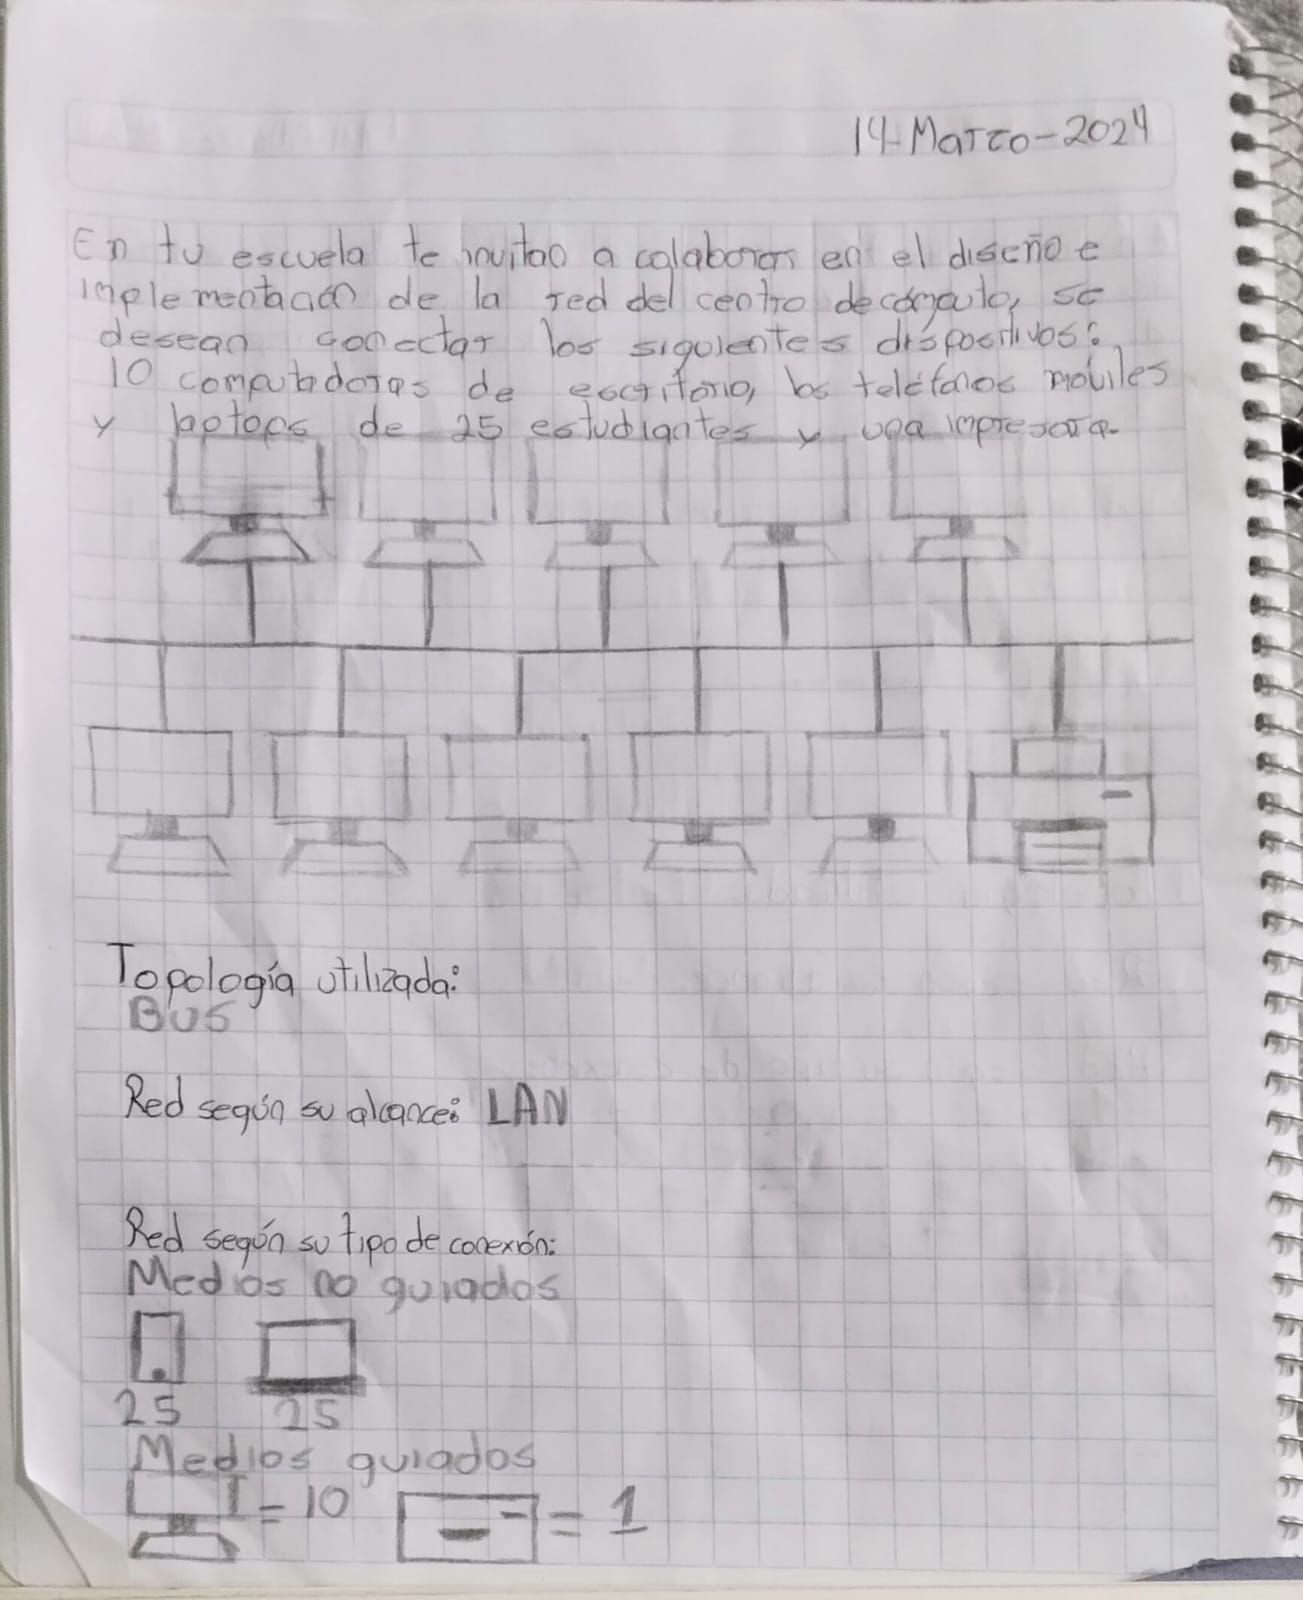 14-Marzo-2024
En tu escuela te invitan a colaborar en el diseño e
implementación de la red del centro de cómputo, se
desean conectar los siguientes dispositivos:
10 computadoras de escritorio, los teléfonos móviles
y laptops de 25 estudiantes y una impresora.
Topología utilizada:
BUS
Red según su alcance: LAN
Red según su tipo de conexión:
Medios no guiados
25 25
Medios guiados
= 10 = 1